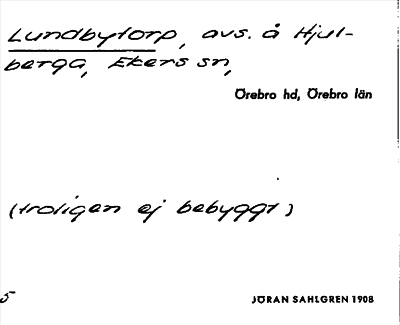 Lundbytorp, avs. å Hjul-
berga, Ekers sn,
Örebro hd, Örebro län
(troligen ej bebyggt)
5
JÖRAN SAHLGREN 1908